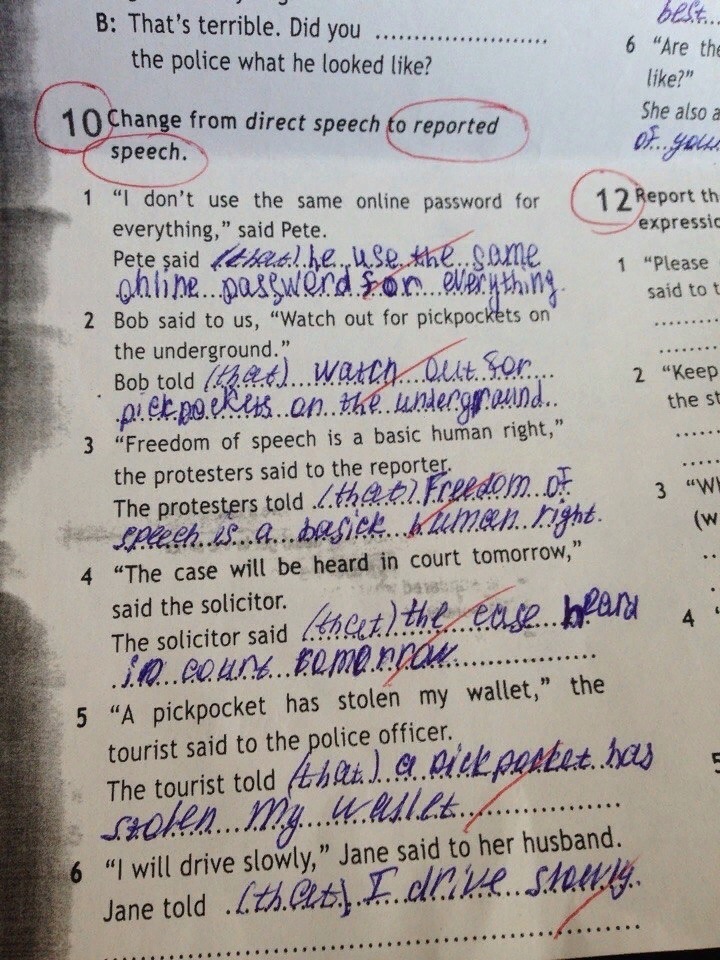 B: That's terrible. Did you ........................
the police what he looked like?
10 Change from direct speech to reported
speech.
1 "I don't use the same online password for
everything," said Pete.
Pete said (that) he use the same
online password for everything.
2 Bob said to us, "Watch out for pickpockets on
the underground."
Bob told (that) watch out for
pickpockets on the underground.
3 "Freedom of speech is a basic human right,"
the protesters said to the reporter.
The protesters told (that) Freedom of
speech is a basick human right.
4 "The case will be heard in court tomorrow,"
said the solicitor.
The solicitor said (that) the case heard
in court tomorrow.
5 "A pickpocket has stolen my wallet," the
tourist said to the police officer.
The tourist told (that) a pickpocket has
stolen my wallet
6 "I will drive slowly," Jane said to her husband.
Jane told (that) I drive slowly.
best
6 "Are the
like?"
She also a
of your
12 Report th
expressio
1 "Please
said to t
2 "Keep
the st
3 "Wh
(w
4
5